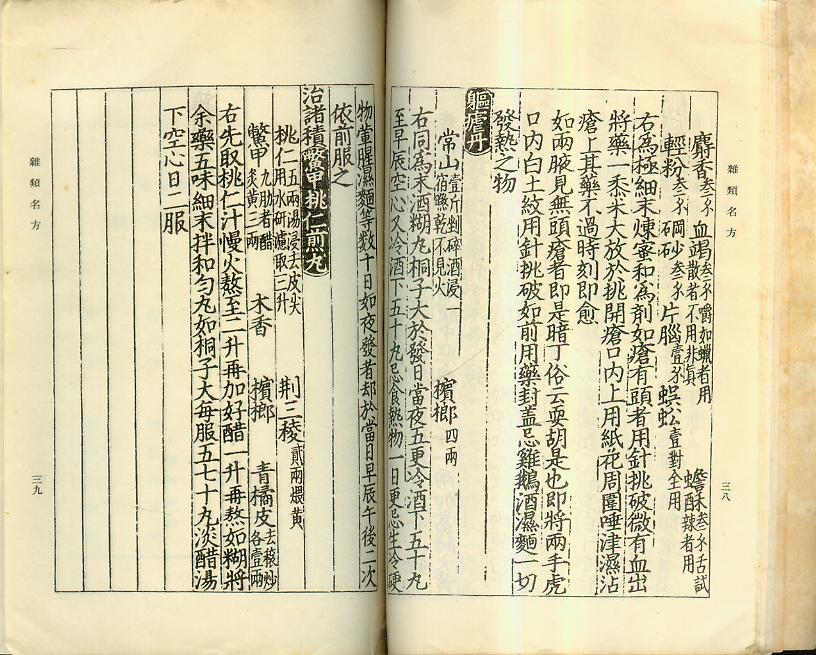 雜類名方
三八
麝香叁分 血竭叁分嚼如蠟者用散者不用非真 蟾酥叁分舌試酷辣者用
輕粉叁分 碙砂叁分 片腦壹分 蜈蚣壹對全用
右為極細末煉蜜和為劑如瘡有頭者用針挑破微有血出
將藥一黍米大放於挑開瘡口內上用紙花周圍唾津濕沾
瘡上其藥不過時刻即愈
如兩腋見無頭瘡者即是暗丁俗云耍胡是也即將兩手虎
口內白土紋用針挑破如前用藥封盖忌雞鵝酒濕麵一切
發熱之物
軀瘧丹
常山壹斤剉碎酒浸一宿曬乾不見火 檳榔四兩
右同為末酒糊丸桐子大於發日當夜五更冷酒下五十丸
至早辰空心又冷酒下五十丸忌食熱物一日更忌生冷硬
物葷腥濕麵等數十日如夜發者却於當日早辰午後二次
依前服之
治諸積鱉甲桃仁煎丸
桃仁五兩湯浸去皮尖用水研濾取二升 荆三稜貳兩煨黄
鱉甲九肋者醋炙黄二兩 木香 檳榔 青橘皮去穰炒各壹兩
右先取桃仁汁慢火熬至二升再加好醋一升再熬如糊將
余藥五味細末拌和勻丸如桐子大每服五七十丸淡醋湯
下空心日二服
雜類名方
三九